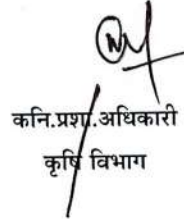 कनि.प्रशा.अधिकारी
कृषि विभाग